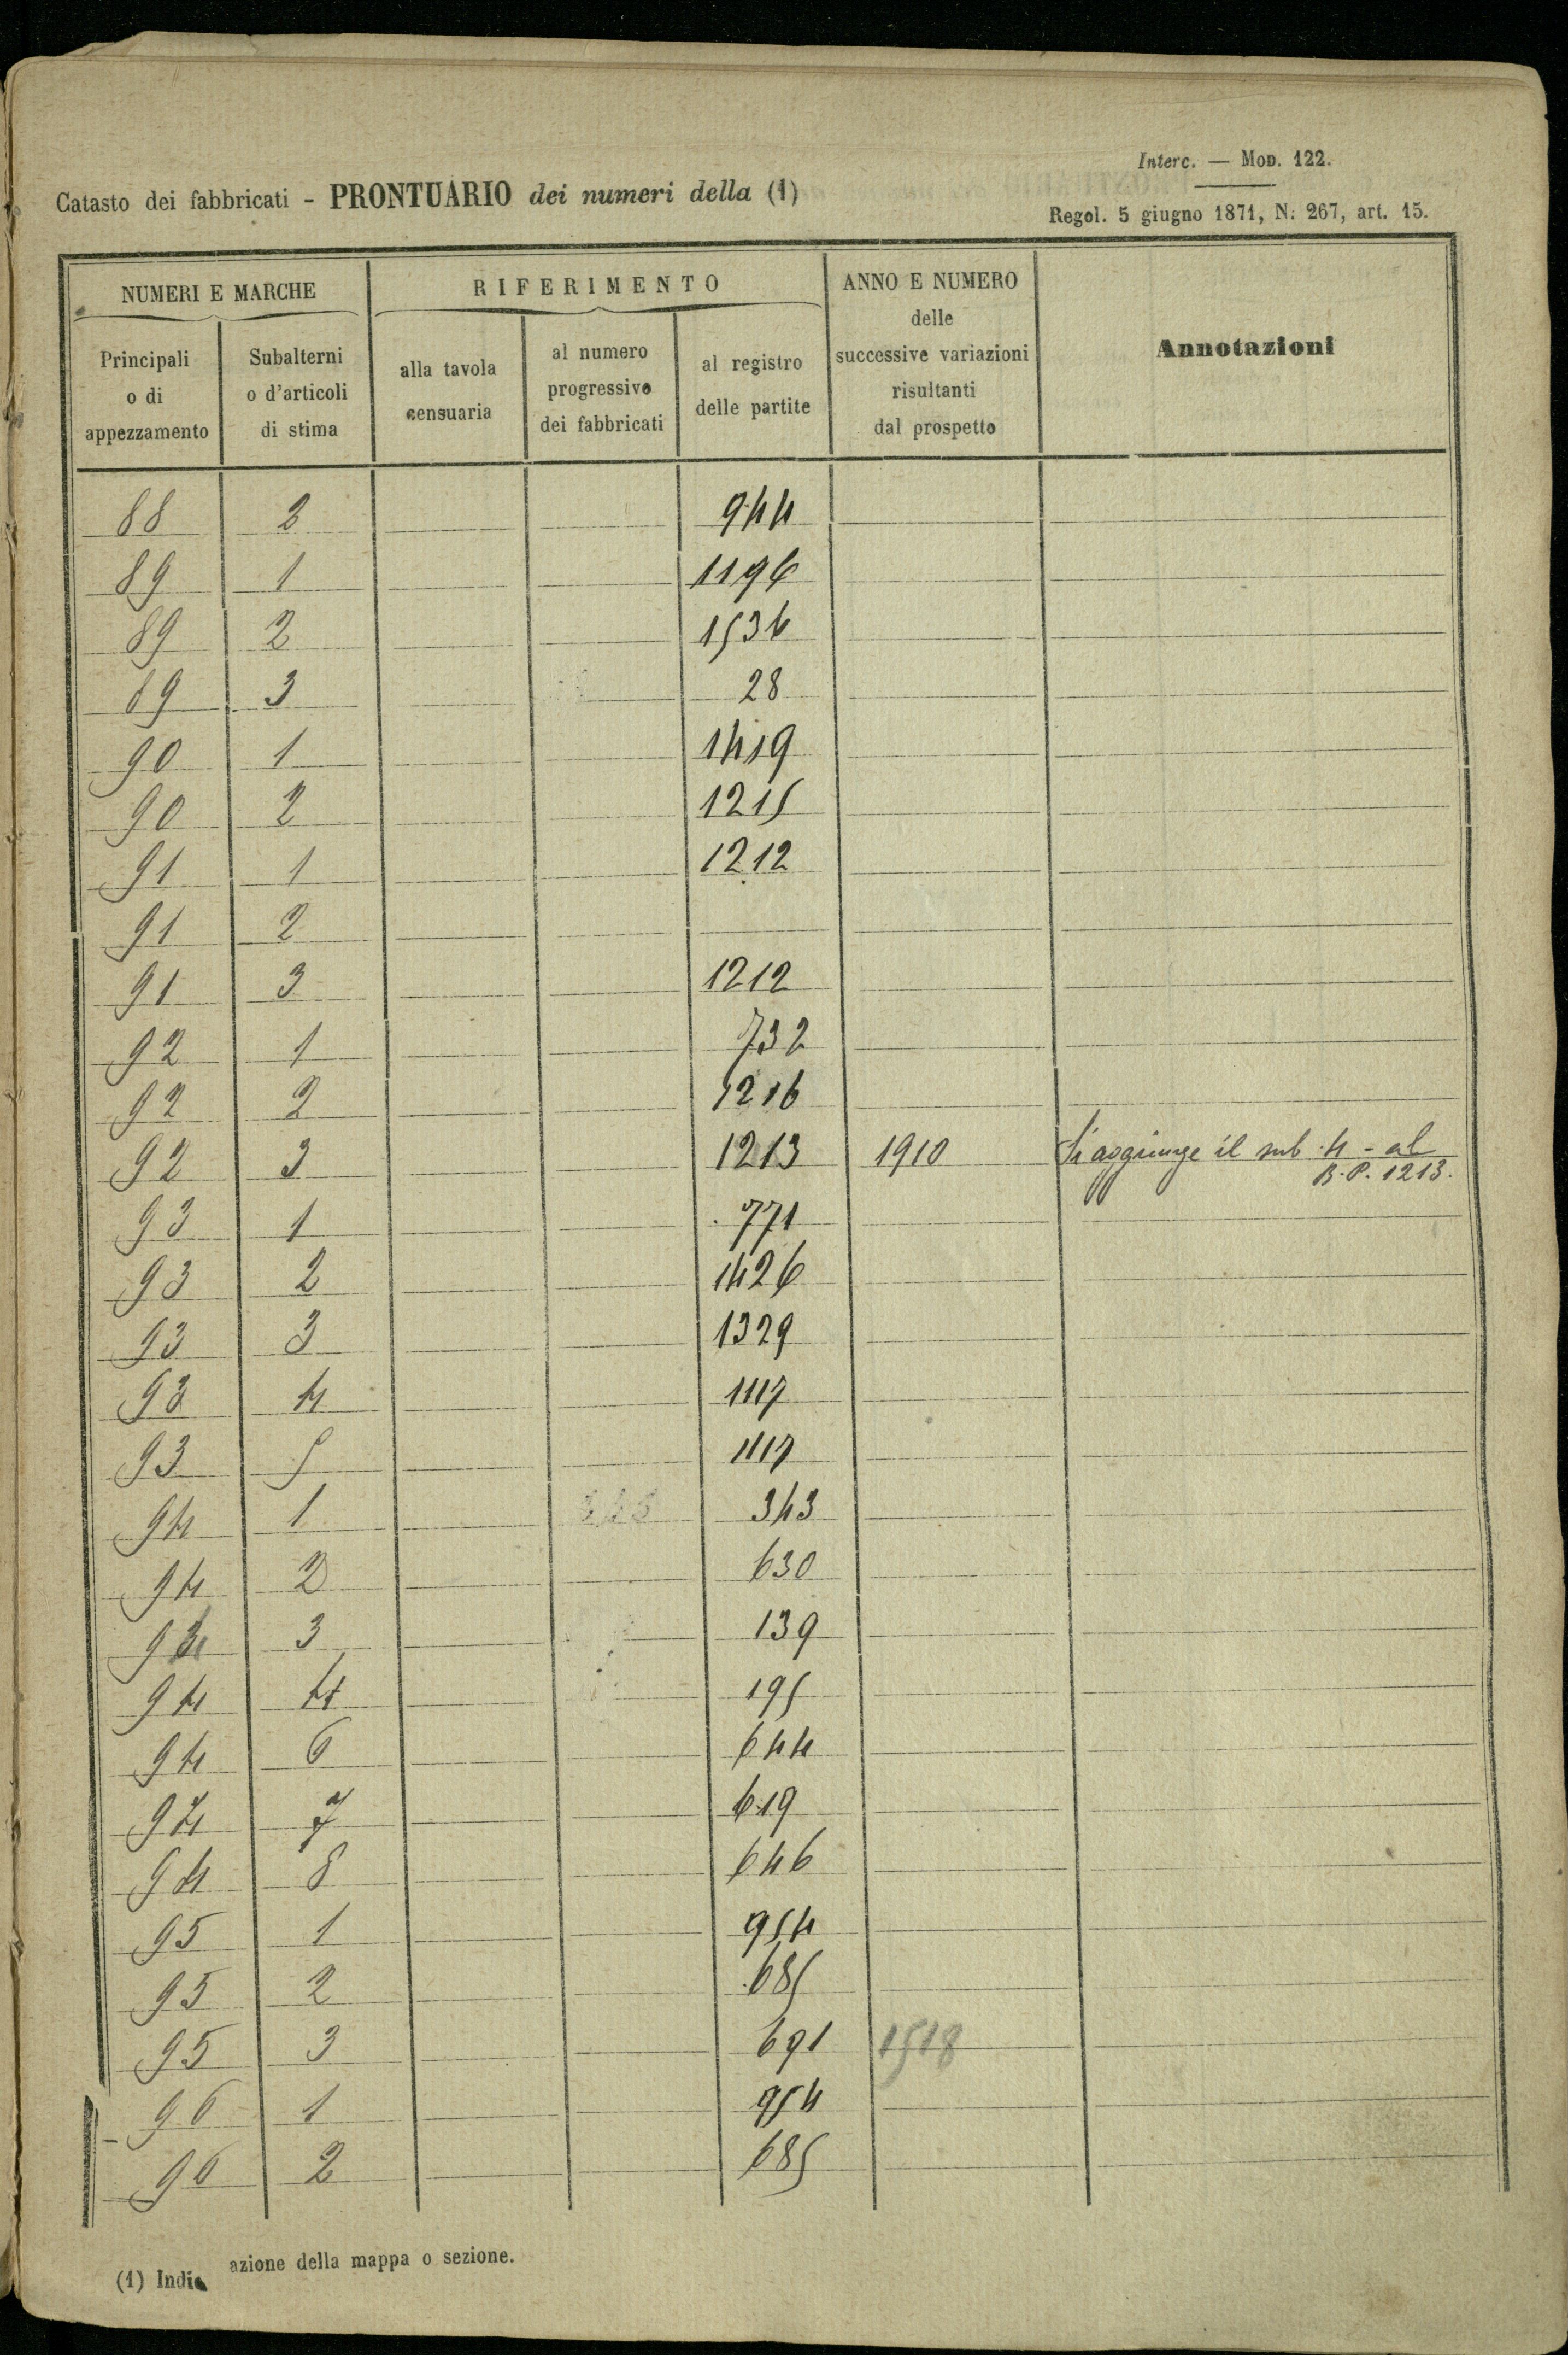 Interc. — Mod. 122.
Catasto dei fabbricati - PRONTUARIO dei numeri della (1)
Regol. 5 giugno 1871, N. 267, art. 15.
NUMERI E MARCHE
RIFERIMENTO
ANNO E NUMERO
delle
successive variazioni
risultanti
dal prospetto
Annotazioni
Principali
o di
appezzamento
Subalterni
o d'articoli
di stima
alla tavola
censuaria
al numero
progressivo
dei fabbricati
al registro
delle partite
88 2 944
89 1 1196
89 2 1536
89 3 28
90 1 1419
90 2 1215
91 1 1212
91 2
91 3 1212
92 1 732
92 2 1216
92 3 1213 1910 Si aggiunge il sub. 4 - al
B.P. 1213.
93 1 771
93 2 1426
93 3 1329
93 4 1117
93 5 1117
94 1 343
94 2 630
94 3 139
94 4 195
94 6 644
94 7 619
94 8 646
95 1 954
95 2 685
95 3 691 1518
96 1 954
96 2 685
(1) Indicazione della mappa o sezione.